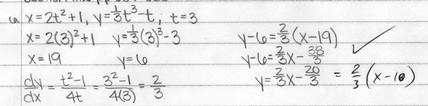 a x=2t²+1, y=⅓t³-t, t=3
x=2(3)²+1 y=⅓(3)³-3
x=19 y=6
dy/dx = t²-1/4t = 3²-1/4(3) = 2/3
y-6=⅔(x-19)
y-6=⅔x-38/3
y=⅔x-20/3 = ⅔(x-10)